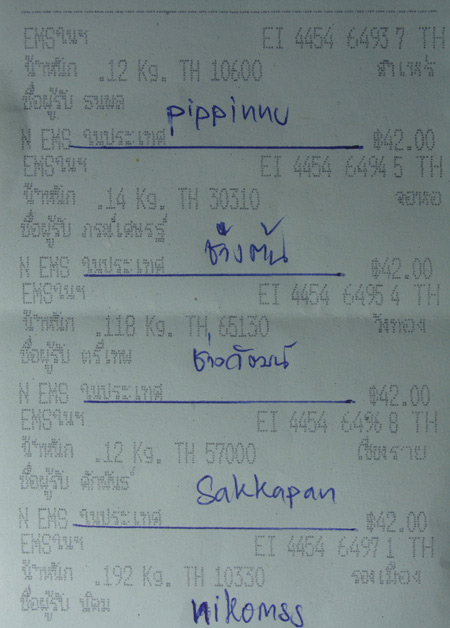 EMSในฯ EI 4454 6493 7 TH
น้ำหนัก .12 Kg. TH 10600 สำเหร่
ชื่อผู้รับ ธนพล
pippinnu
N EMS ในประเทศ ฿42.00
EMSในฯ EI 4454 6494 5 TH
น้ำหนัก .14 Kg. TH 30310 จอหอ
ชื่อผู้รับ ภรณ์เศษรฐ์
ช้างต้น
N EMS ในประเทศ ฿42.00
EMSในฯ EI 4454 6495 4 TH
น้ำหนัก .118 Kg. TH 65130 วังทอง
ชื่อผู้รับ ตรีเทพ
N EMS ในประเทศ ฿42.00
EMSในฯ EI 4454 6496 8 TH
น้ำหนัก .12 Kg. TH 57000 เชียงราย
ชื่อผู้รับ ศักพันธ์
Sakkapan
N EMS ในประเทศ ฿42.00
EMSในฯ EI 4454 6497 1 TH
น้ำหนัก .192 Kg. TH 10330 รองเมือง
ชื่อผู้รับ นิคม
nikomss